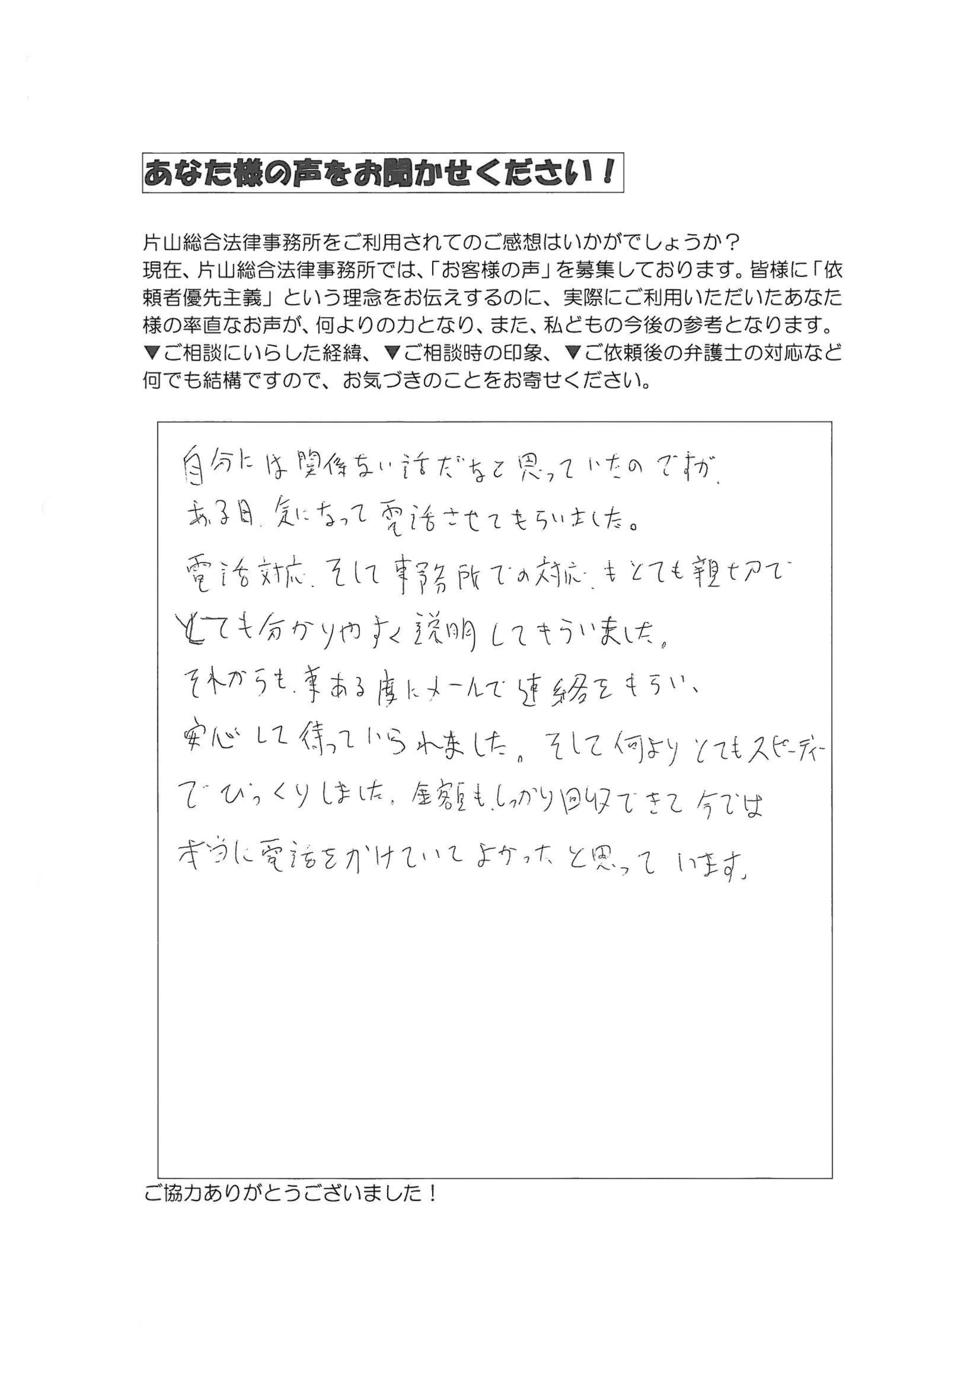 あなた様の声をお聞かせください！
片山総合法律事務所をご利用されてのご感想はいかがでしょうか？
現在、片山総合法律事務所では、「お客様の声」を募集しております。皆様に「依
頼者優先主義」という理念をお伝えするのに、実際にご利用いただいたあなた
様の率直なお声が、何よりの力となり、また、私どもの今後の参考となります。
▼ご相談にいらした経緯、▼ご相談時の印象、▼ご依頼後の弁護士の対応など
何でも結構ですので、お気づきのことをお寄せください。
自分には関係ない話だなと思っていたのですが、
ある日、気になって電話させてもらいました。
電話対応、そして事務所での対応、もとても親切で
とても分かりやすく説明してもらいました。
それからも、事ある度にメールで連絡をもらい、
安心して待っていられました。そして何よりとてもスピーディー
でびっくりしました、金額も、しっかり回収できて今では
本当に電話をかけていてよかったと思っています。
ご協力ありがとうございました！